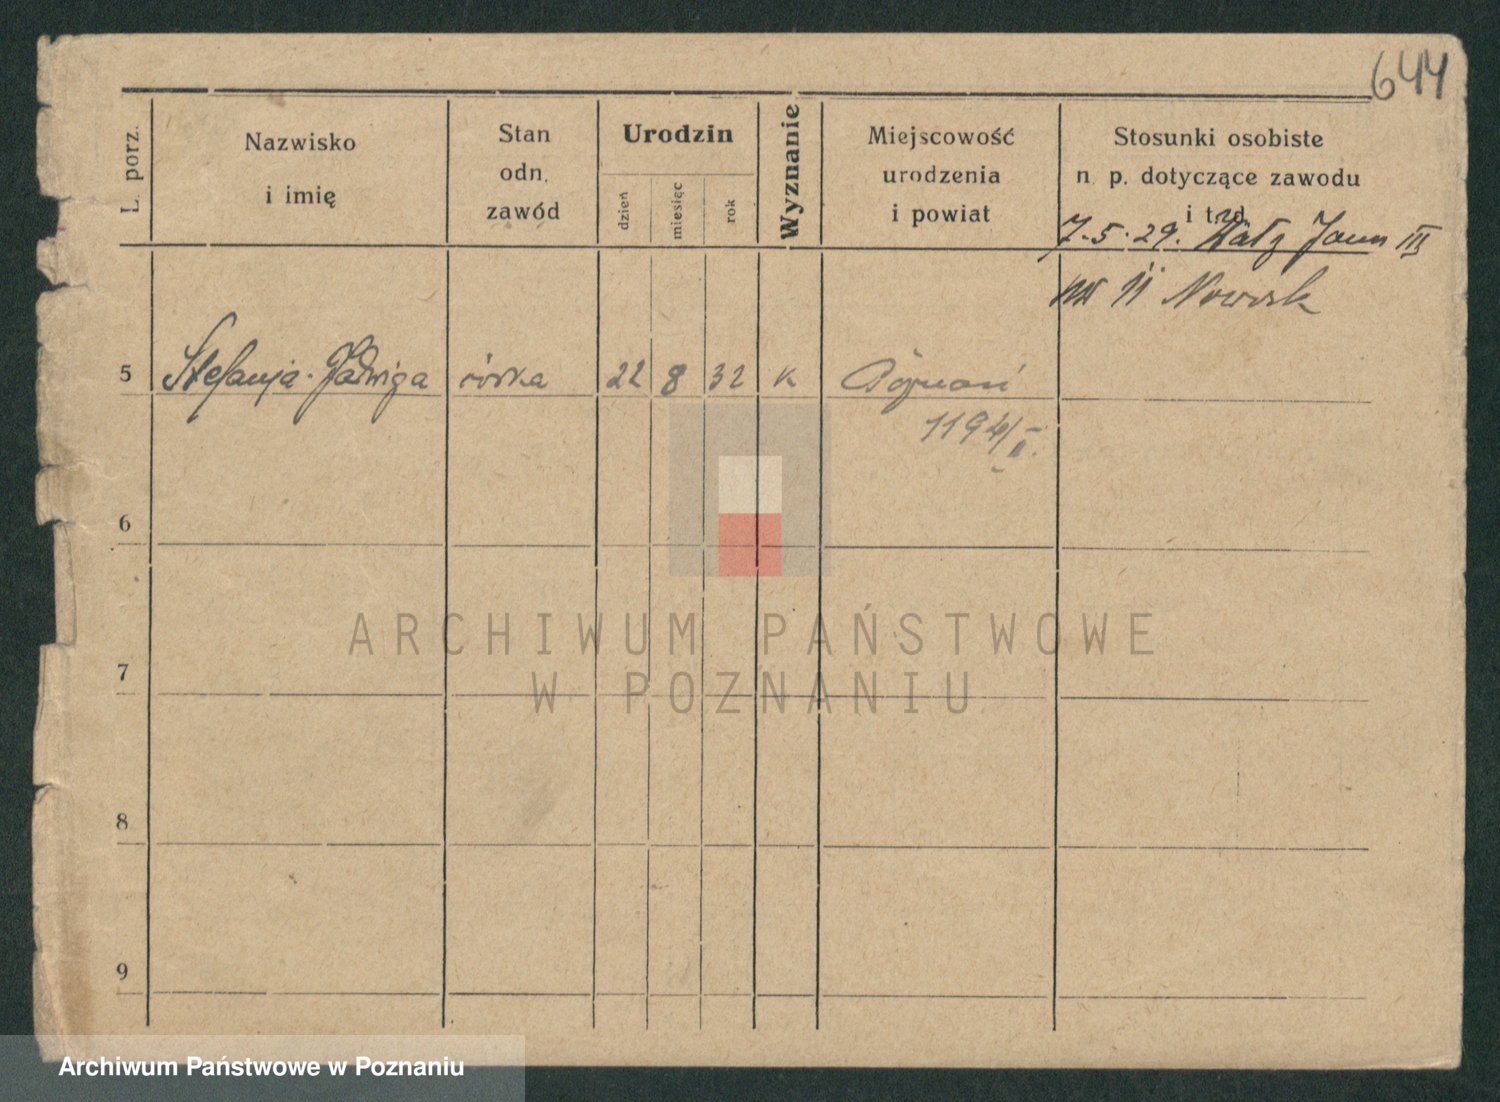 644
L. porz.
Nazwisko
i imię
Stan
odn.
zawód
Urodzin
dzień
miesięc
rok
Wyznanie
Miejscowość
urodzenia
i powiat
Stosunki osobiste
n. p. dotyczące zawodu
i t. d.
7.5.29. Jana III
11 Nowak
5 Stefanja Jadwiga córka 22 8 32 k Poznań
1194/II.
6
7
8
9
ARCHIWUM PAŃSTWOWE
W POZNANIU
Archiwum Państwowe w Poznaniu